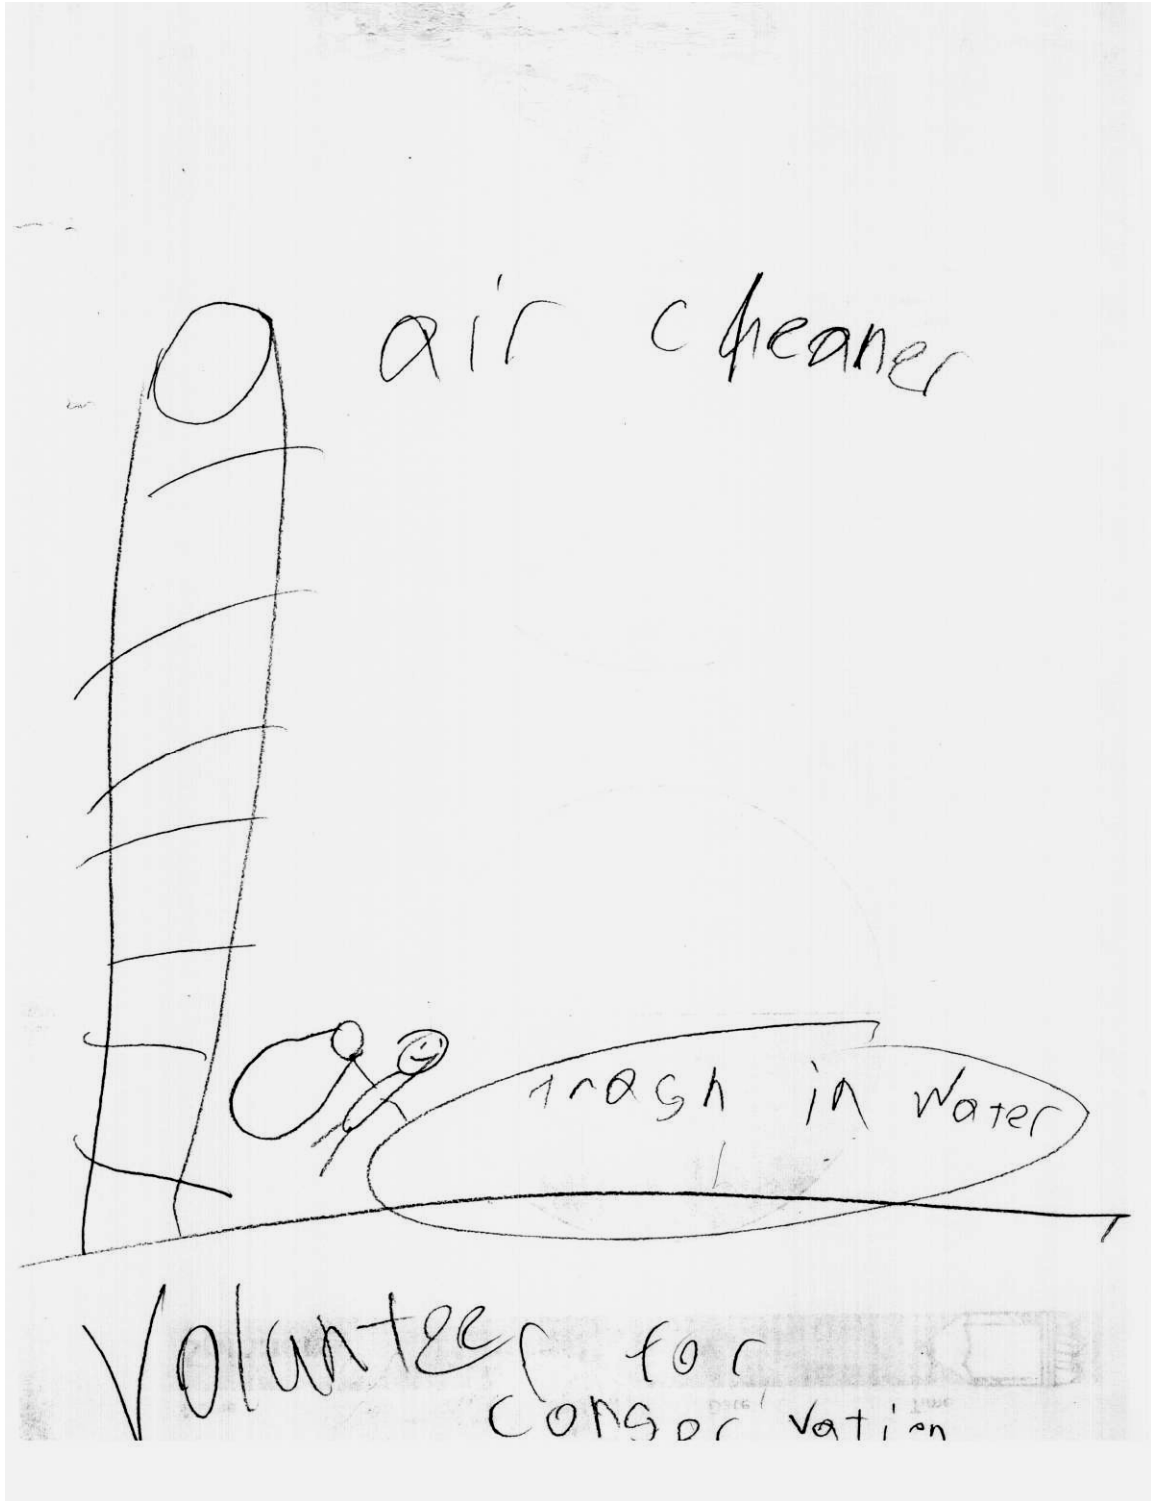 air cleaner
trash in water
Volunteer for
consorvation
Date
Time